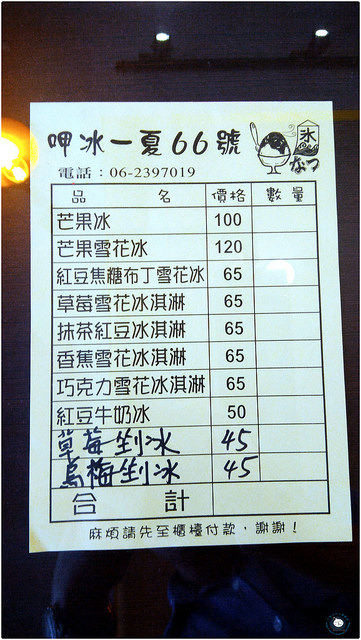 呷冰一夏66號
氷
なつ
電話：06-2397019
品 名 價格 數量
芒果冰 100
芒果雪花冰 120
紅豆焦糖布丁雪花冰 65
草莓雪花冰淇淋 65
抹茶紅豆冰淇淋 65
香蕉雪花冰淇淋 65
巧克力雪花冰淇淋 65
紅豆牛奶冰 50
草莓剉冰 45
烏梅剉冰 45
合 計
麻煩請先至櫃檯付款，謝謝！